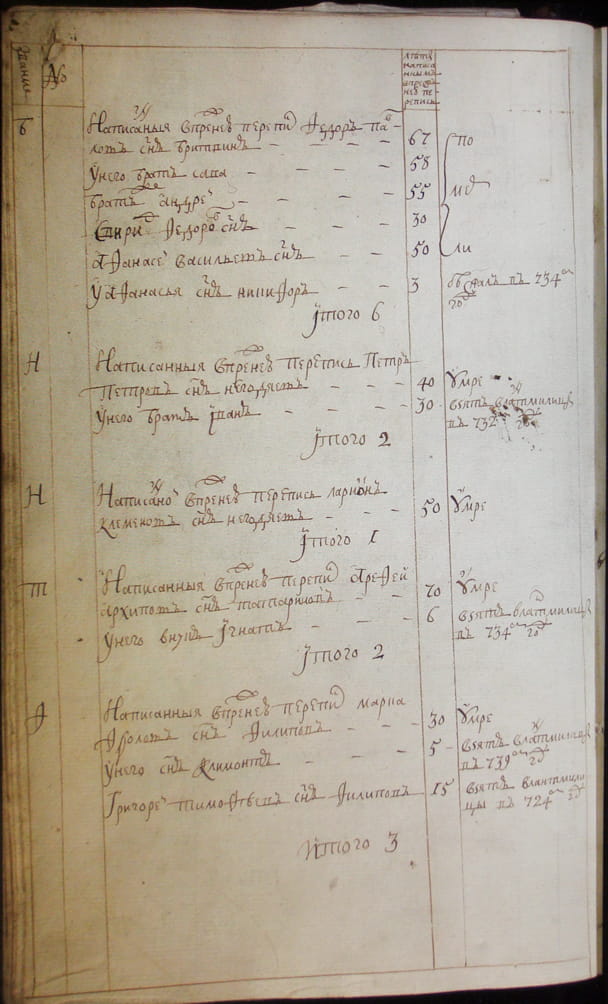 звание
№
лета написанным в прежней переписи
Б
Написанныя в прежней переписи Федоръ Па-
ловъ снъ Бритвинъ 67
У него братъ Сава 58
братъ Андрей 55
Спири Федоровъ снъ 30
Афанасей Васильевъ снъ 50
У Афанасья снъ Никифоръ 3
по
ме
ли
в 734 м
году
Итого 6
Н
Написанныя в прежней переписи Петръ
Петровъ снъ Негодяевъ 40 умре
У него братъ Іванъ 30 взятъ в лантмилицы
въ 732 году
Итого 2
Н
Написаной в прежней переписи Ларионъ
Клеменовъ снъ Негодяевъ 50 умре
Итого 1
Т
Написанныя в прежней переписи Арефей
Архиповъ снъ Татариновъ 70 умре
У него внукъ Ігнатъ 6 взятъ в лантмилицы
въ 734 м году
Итого 2
Ф
Написанныя в прежней переписи Марка
Фроловъ снъ Филиповъ 30 умре
У него снъ Климонтъ 5 взятъ в лантмилицы
въ 739 м году
Григорей Тимофеевъ снъ Филиповъ 15 взятъ в лантмили
цы въ 724 м году
Итого 3